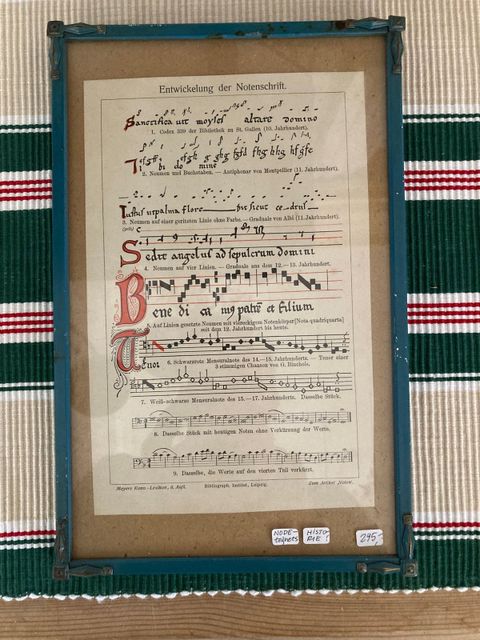 Entwickelung der Notenschrift.
Sanctifica uit moyses altare domino
1. Codex 339 der Bibliothek zu St. Gallen (10. Jahrhundert).
Tibi do mine
2. Neumen und Buchstaben. — Antiphonar von Montpellier (11. Jahrhundert).
Iustus ut palma flore bit sicut ce drus
3. Neumen auf einer geritzten Linie ohne Farbe. — Graduale von Albi (11. Jahrhundert).
(gelb) C
Sedit angelus ad sepulcrum domini
4. Neumen auf vier Linien. — Graduale aus dem 12.—13. Jahrhundert.
Bene di ca mus patrē et filium
5. Auf Linien gesetzte Neumen mit viereckigem Notenkörper [Nota quadriquarta]
seit dem 12. Jahrhundert bis heute.
Tenor
6. Schwarzrote Mensuralnote des 14.—15. Jahrhunderts. — Tenor einer
3 stimmigen Chanson von G. Binchois.
7. Weiß-schwarze Mensuralnote des 15.—17. Jahrhunderts. Dasselbe Stück.
8. Dasselbe Stück mit heutigen Noten ohne Verkürzung der Werte.
9. Dasselbe, die Werte auf den vierten Teil verkürzt.
Meyers Konv.-Lexikon, 6. Aufl.
Bibliograph. Institut, Leipzig.
Zum Artikel ‚Noten'.
NODE-
tegnets
HISTO-
RIE!
295,-